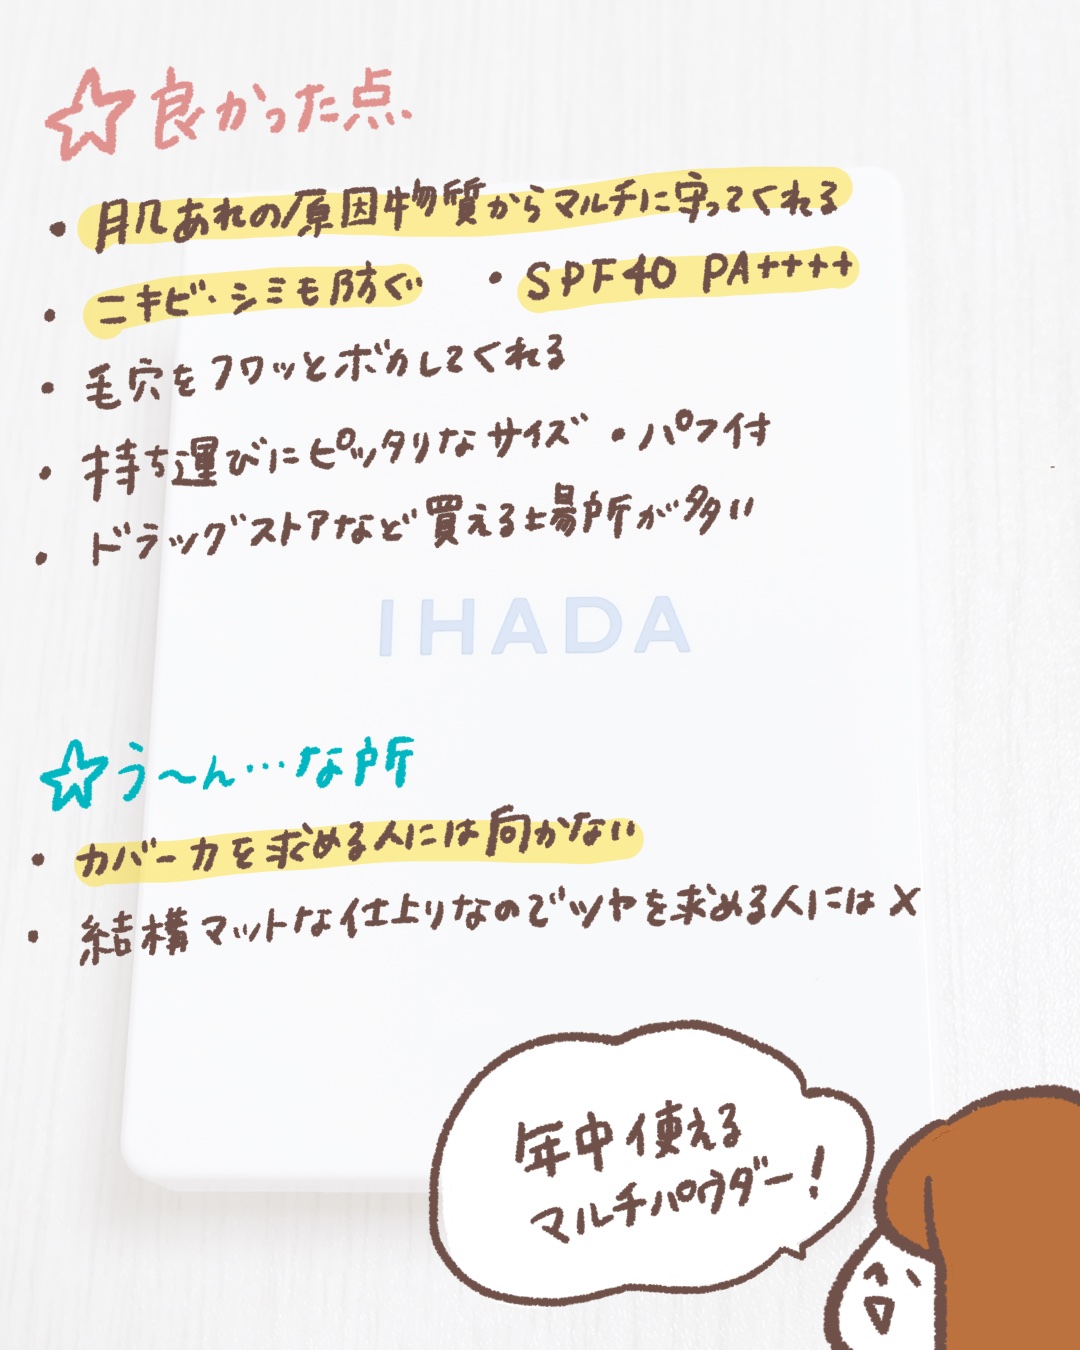 ☆良かった点.
・肌あれの原因物質からマルチに守ってくれる
・ニキビ・シミも防ぐ ・SPF40 PA++++
・毛穴をフワッとボカしてくれる
・持ち運びにピッタリなサイズ・パフ付
・ドラッグストアなど買える場所が多い
IHADA
☆う〜ん…な所
・カバー力を求める人には向かない
・結構マットな仕上りなのでツヤを求める人には×
年中使える
マルチパウダー!